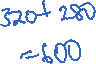 320+ 280
=600